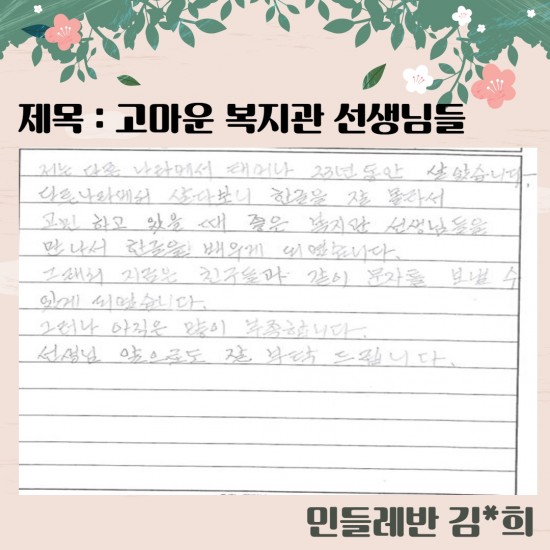 제목 : 고마운 복지관 선생님들
저는 다른 나라에서 태어나 23년동안 살았습니다.
다른나라에서 살다보니 한글을 잘 몰라서
고민 하고 있을 때 좋은 복지관 선생님들을
만나서 한글을 배우게 되였습니다.
그래서 지금은 친구들과 같이 문자를 보낼 수
있게 되였습니다.
그러나 아직은 많이 부족합니다.
선생님 앞으로도 잘 부탁 드립니다.
민들레반 김*희